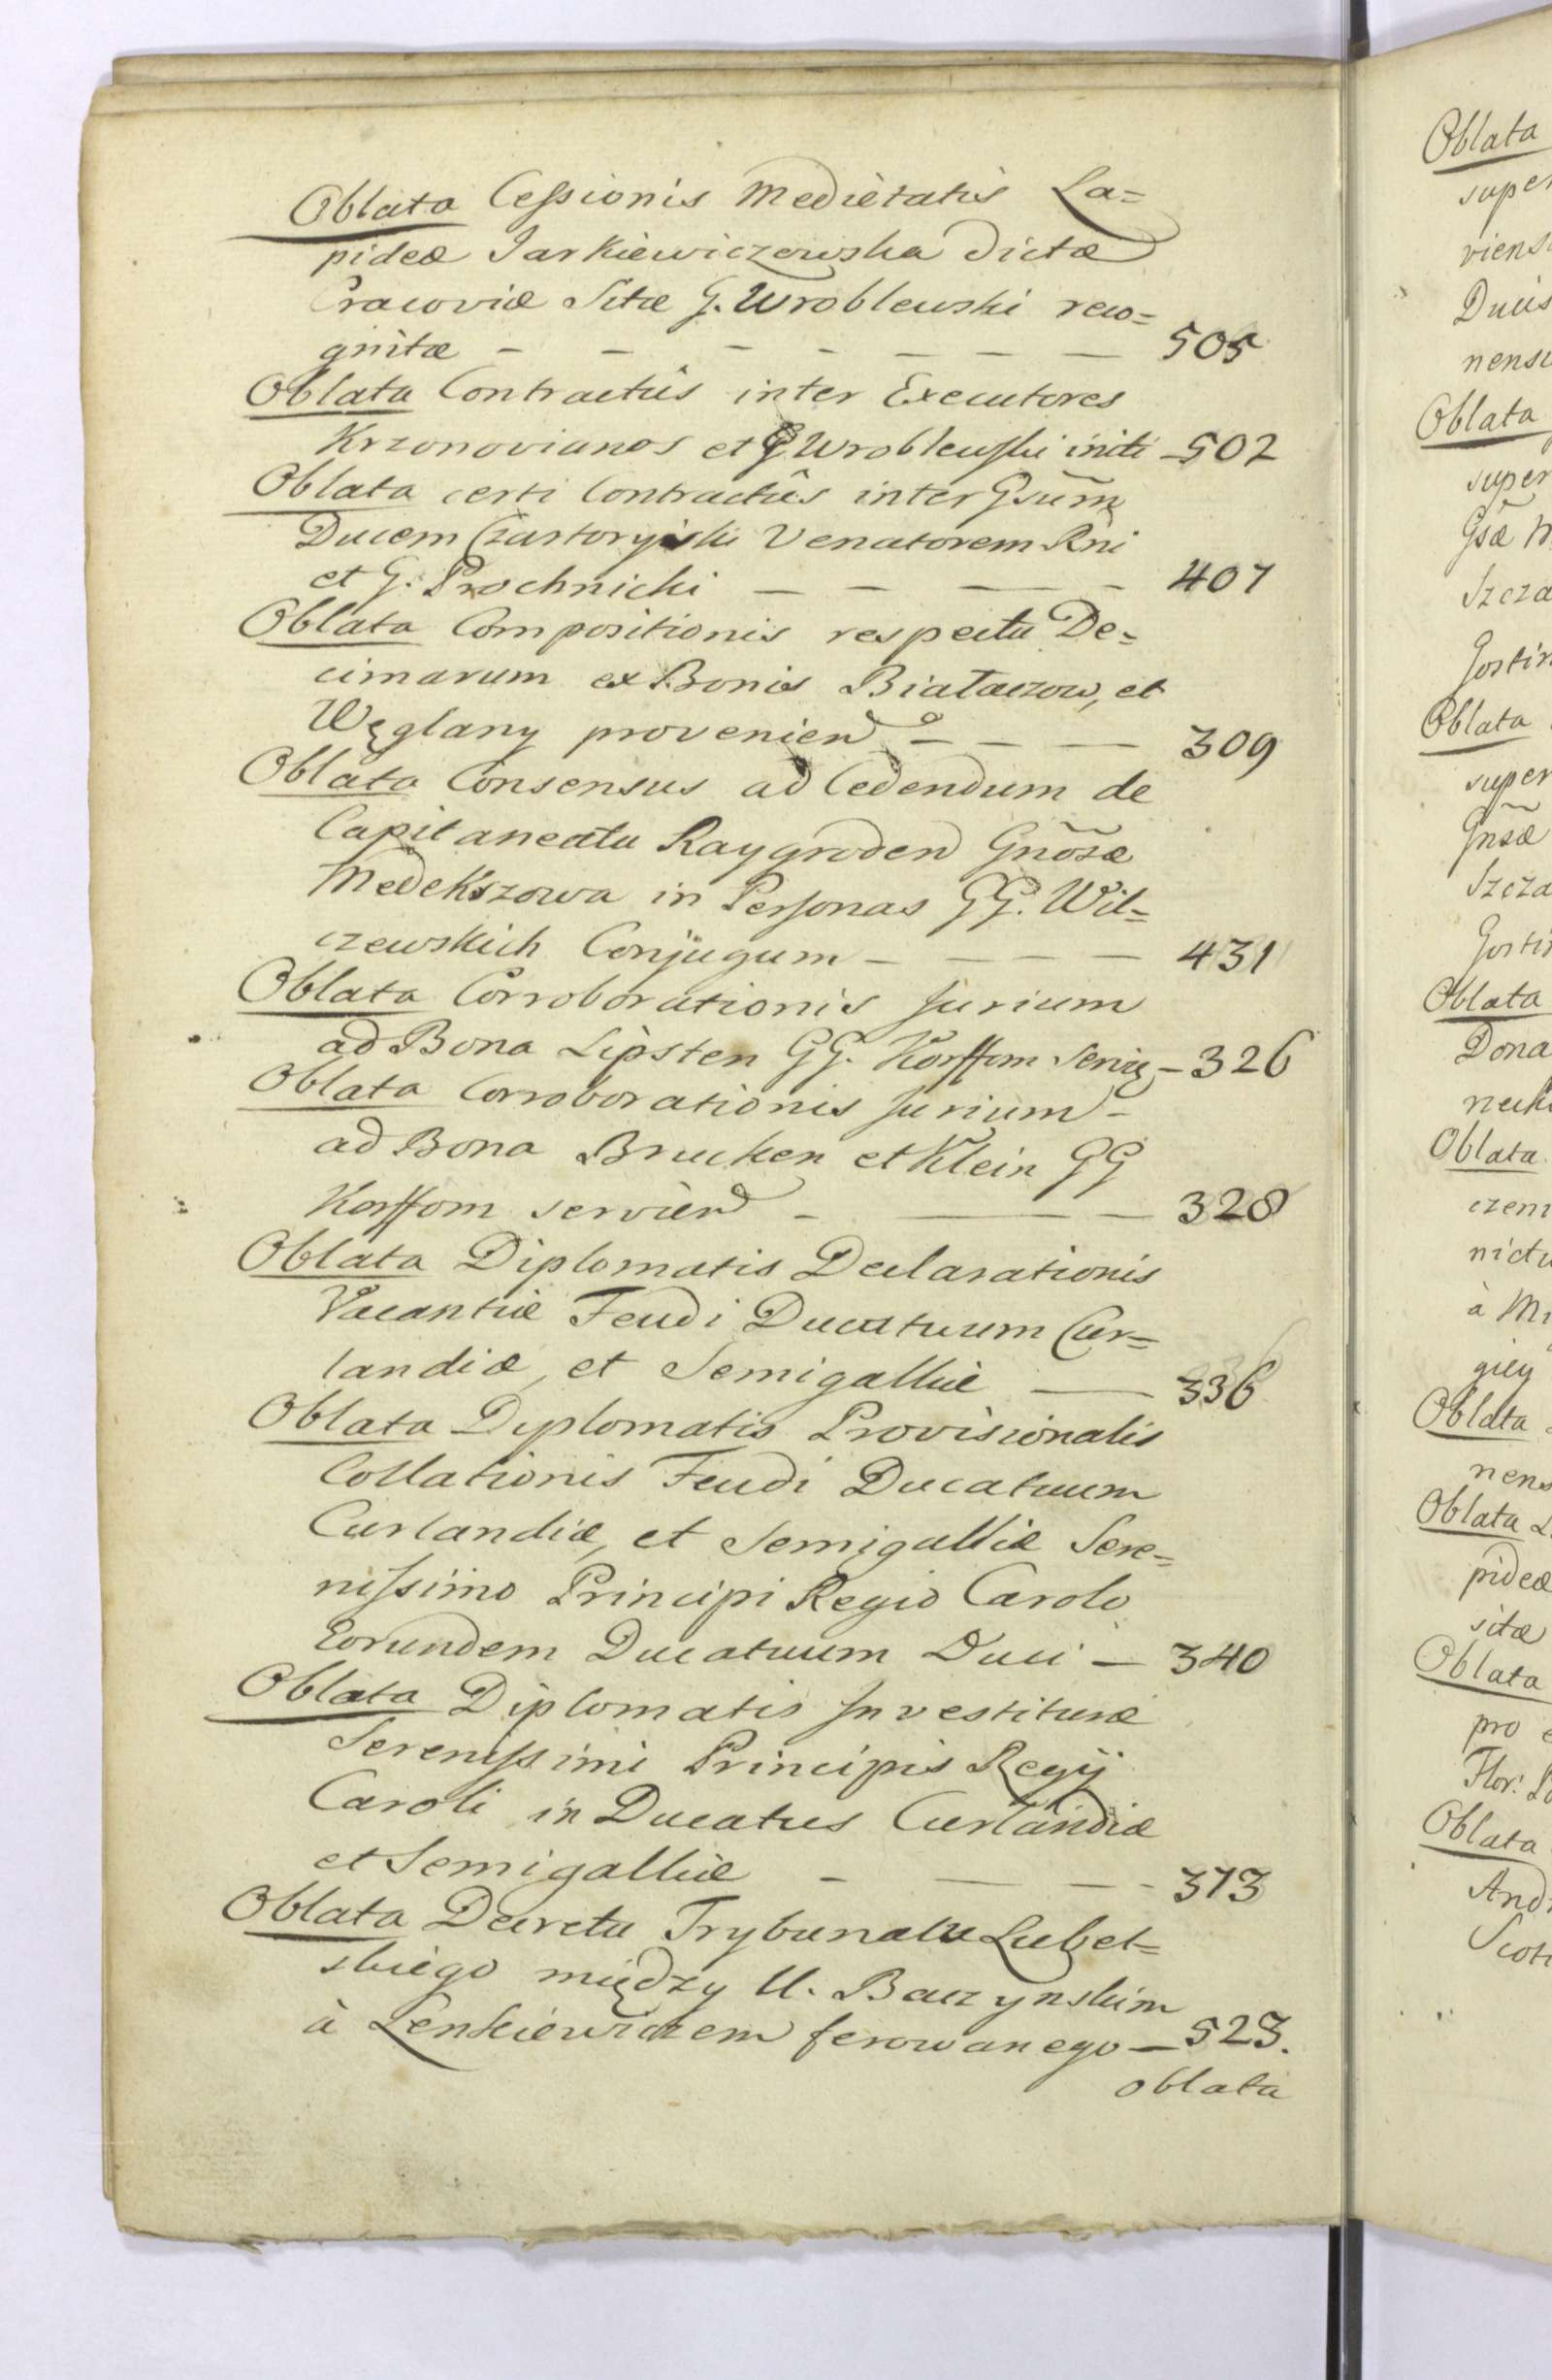 Oblata Cessionis Medietatis La=
pideæ Jarkiewiczowska dictæ
Cracoviæ Sitæ G. Wroblewski reco=
gnitæ – – – – – – – 505
Oblata Contractûs inter Executores
Krzonovianos et G Wroblewski initi – 502
Oblata certi Contractûs inter Gsum̃
Ducem Czartoryiski Venatorem Rñi
et G. Prochnicki – – – – 407
Oblata Compositionis respectu De=
cimarum ex Bonis Białaczow, et
Węglany provenien – – – 309
Oblata Consensus ad Cedendum de
Capitaneatu Raygroden Gnõsæ
Medekszowa in Personas GG. Wil=
czewskich Conjugum – – – – 431
Oblata Corroborationis Jurium
ad Bona Lipsten GG. Korffom – 326
Oblata Corroborationis Jurium –
ad Bona Brucken et Klein GG
Korffom servien – – – – 328
Oblata Diplomatis Declarationis
Vacantiæ Feudi Ducatuum Cur=
landiæ, et Semigalliæ – 336
Oblata Diplomatis Provisionalis
Collationis Feudi Ducatuum
Curlandiæ, et Semigalliæ Sere=
nissimo Principi Regio Carolo
Eorundem Ducatuum Duci – 340
Oblata Diplomatis Investituræ
Serenissimi Principis Regij
Caroli in Ducatus Curlandiæ
et Semigalliæ – – – – 373
Oblata Decretu Trybunalu Lubel=
skiego między U. Baczynskim
à Lenkiewiczem ferowanego – 523.
oblata
Oblata
super
viens
Ducis
nens
Oblata
super
Gsæ
Szcza
Gostin
Oblata
super
Gnsæ
Szcza
Gosti
Oblata
Dona
Oblata
czem
nictu
à
giey
Oblata
nens
Oblata
pideæ
sitæ
Oblata
pro
Flor:
Oblata
And